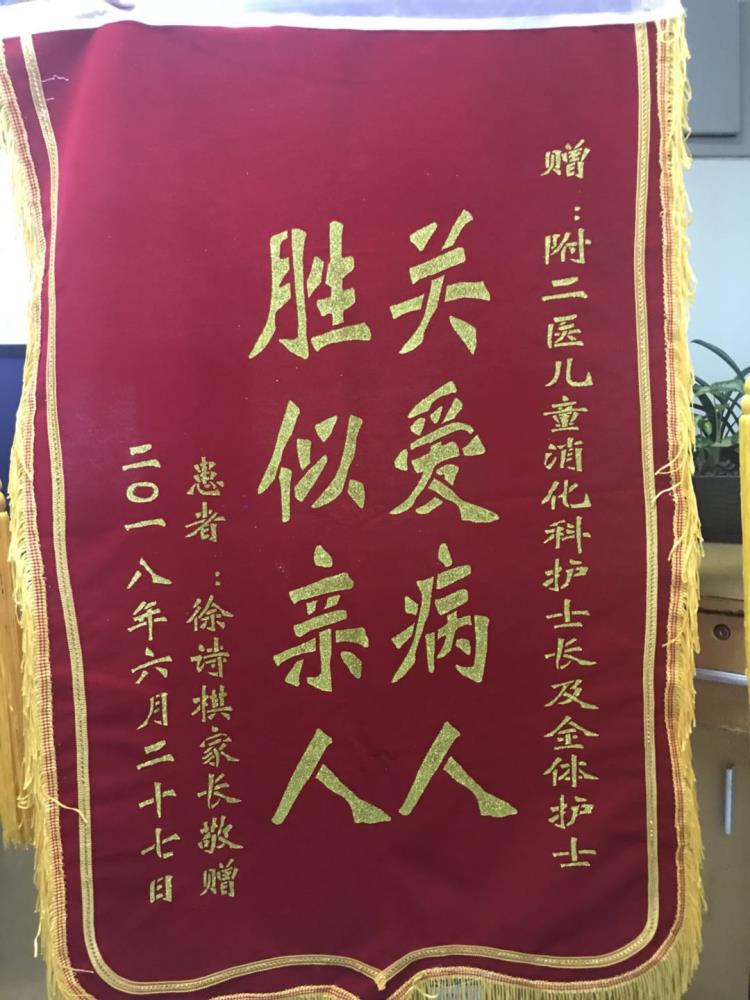 赠：附二医儿童消化科护士长及全体护士
关爱病人
胜似亲人
患者：徐诗棋家长敬赠
二〇一八年六月二十七日